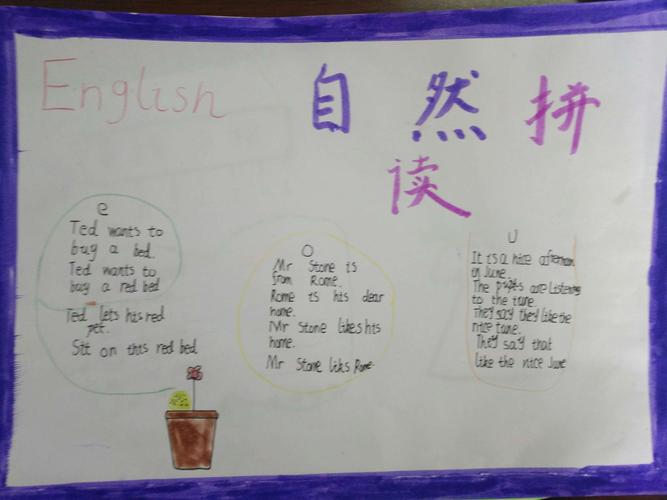 English 自然拼
读
e
Ted wants to
buy a bed.
Ted wants to
buy a red bed
Ted lets his red
pet.
Sit on this red bed
O
Mr Stone is
from Rome.
Rome is his dear
home.
Mr Stone likes his
home.
Mr Stone liks Rome
U
It is a nice afternoon
in June.
The pupils are listening
to the tune.
They say they like the
nice tune.
They say that
like the nice June